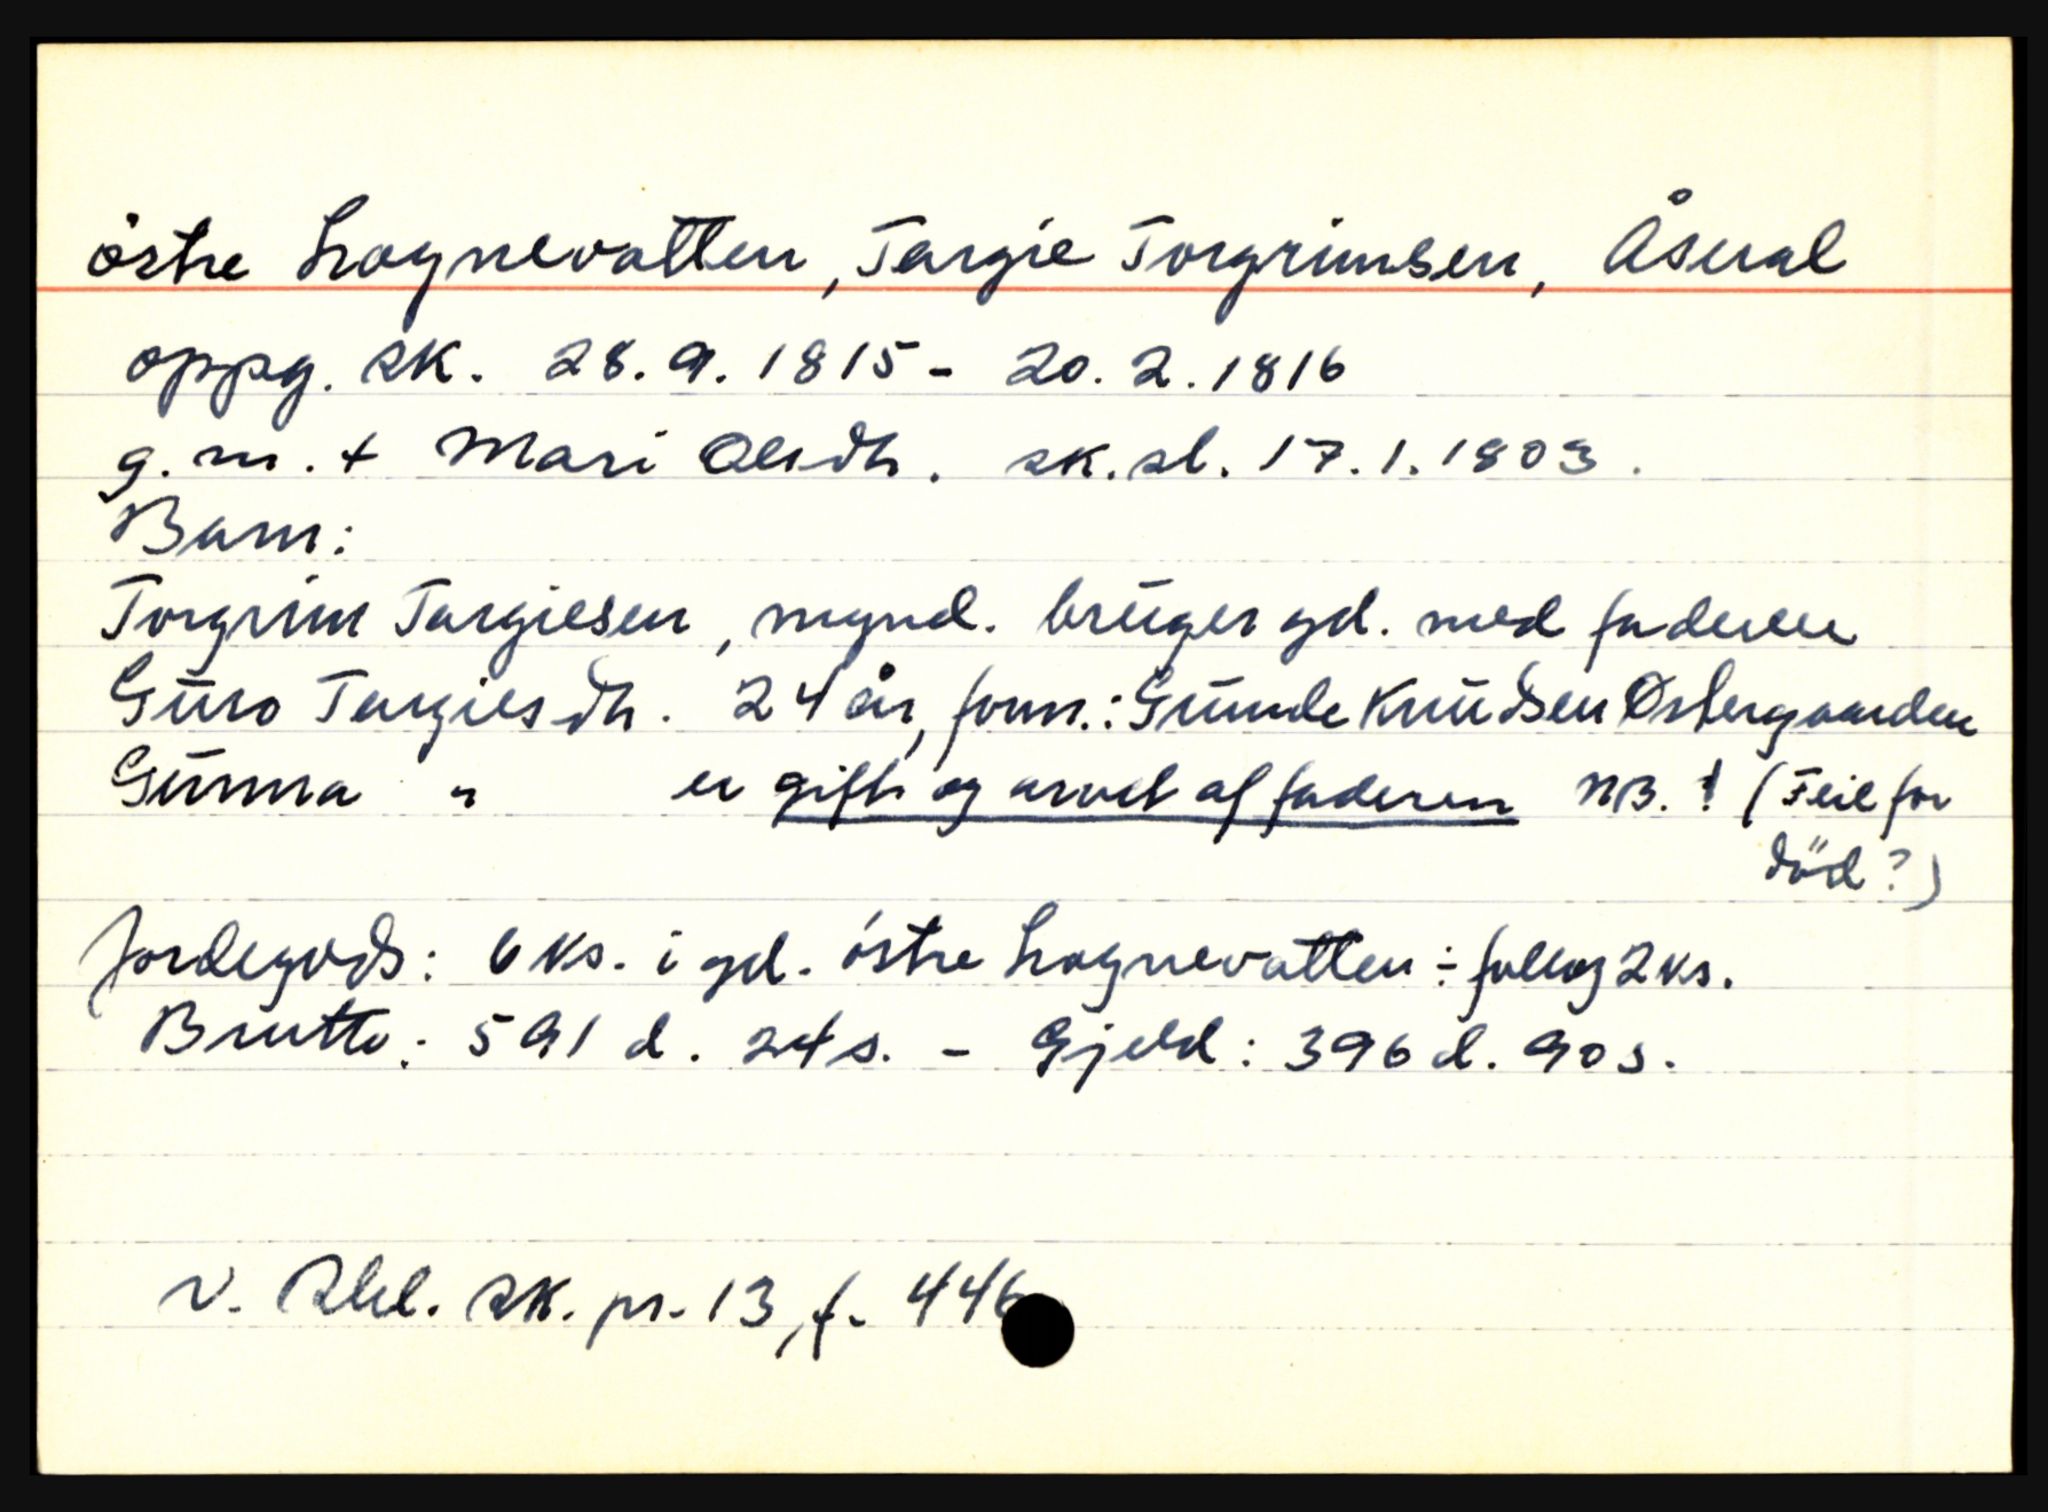 östre Lognevatten, Targie Torgrimsen, Åseral
oppg. sk. 28.9.1815 - 20.2.1816
g.m. + Mari Olsdtr. sk.sl. 17.1.1803.
Barn:
Torgrim Targiesen, mynd. bruger gd. med faderen
Guro Targiesdtr. 24 år, form.: Gunde Knudsen Østergaarden
Gunna " er gift og arvet af faderen NB.! (Feil for
död?)
Jordegods: 6 ks. i gd. östre Lognevatten ÷ follog 2 ks.
Brutto: 591 d. 24 s. - Gjeld: 396 d. 90 s.
V. Råb. sk. pr. 13, f. 446